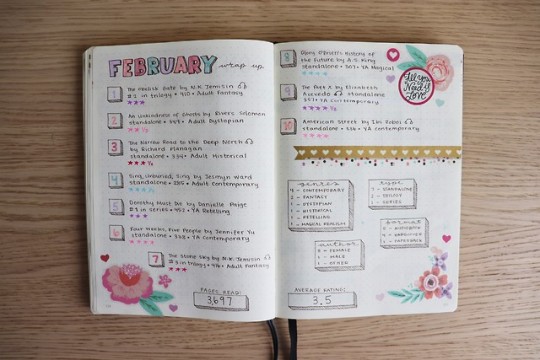 FEBRUARY wrap up
1 The Obelisk Gate by N.K. Jemisin
#2 in trilogy • Adult Fantasy
2 An Unkindness of Ghosts by Rivers Solomon
standalone • Adult Dystopian
3 The Narrow Road to the Deep North
by Richard Flanagan
standalone • Adult Historical
4 Sing, Unburied, Sing by Jesmyn Ward
standalone • Adult Contemporary
5 Dorothy Must Die by Danielle Paige
#1 in series • YA Retelling
6 Four Weeks, Five People by Jennifer Yu
standalone • YA Contemporary
7 The Stone Sky by N.K. Jemisin
#3 in trilogy • Adult Fantasy
PAGES READ:
3,697
8 Glory O'Brien's History of
the Future by A.S. King
standalone • 307 • YA Magical
9 The Poet X by Elizabeth
Acevedo standalone
YA Contemporary
10 American Street by Ibi Zoboi
standalone • YA Contemporary
All You
Need is
Love
genres
4 - CONTEMPORARY
2 - FANTASY
1 - DYSTOPIAN
1 - HISTORICAL
1 - RETELLING
1 - MAGICAL REALISM
type
7 - STANDALONE
2 - TRILOGY
1 - SERIES
format
- AUDIOBOOK
- HARDCOVER
- PAPERBACK
author
8 - FEMALE
1 - MALE
1 - OTHER
AVERAGE RATING:
3.5